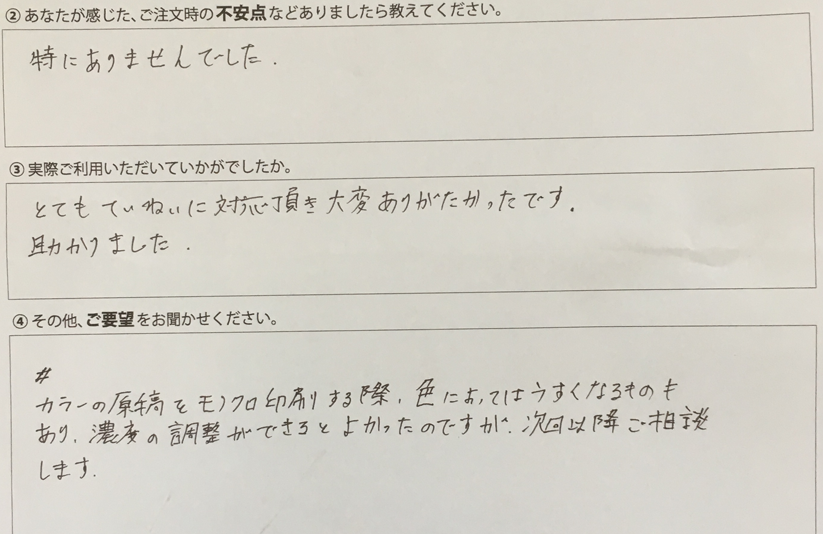 ②あなたが感じた、ご注文時の不安点などありましたら教えてください。
特にありませんでした.
③実際ご利用いただいていかがでしたか。
とてもていねいに対応頂き大変ありがたかったです.
助かりました.
④その他、ご要望をお聞かせください。
#
カラーの原稿をモノクロ印刷する際、色によってはうすくなるものも
あり、濃度の調整ができるとよかったのですが、次回以降ご相談
します.